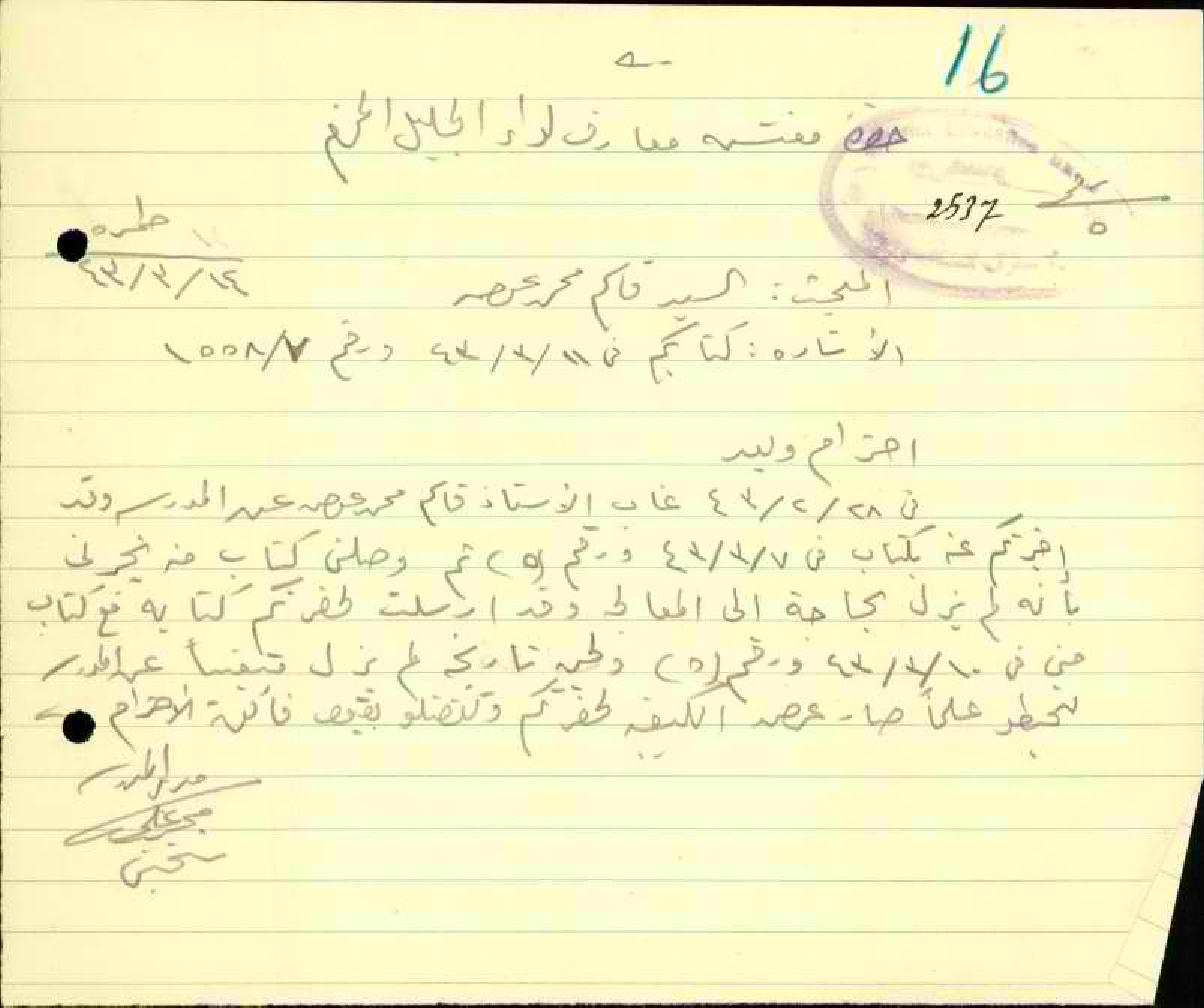 16
حضرة مفتش معارف لواء الجليل المحترم
2537
٥
طمره
٤٣/٣/١٤
المبحث: السيد قاسم محمد عوض
الأشاره: كتابكم في ٤٣/٣/١١ ورقم ١٥٥٨/٧
احترام وبعد
في ٤٣/٢/٢٨ غاب الأستاذ قاسم محمد عوض عن المدرسه وقد
اخبرتكم عنه بكتاب في ٤٣/٣/٧ ورقم (٥) ثم وصلني كتاب منه يخبرني
بأنه لم يزل بحاجة الى المعالجه وقد ارسلت لحضرتكم كتابه مع كتاب
مني في ٤٣/٣/١٠ ورقم (٥) ولحين تاريخه لم يزل متغيباً عن المدرسه
لتحيطو علماً صار عرض الكيفيه لحضرتكم وتفضلو بقبول فائق الأحترام
مدير المدرسه
محمد علي